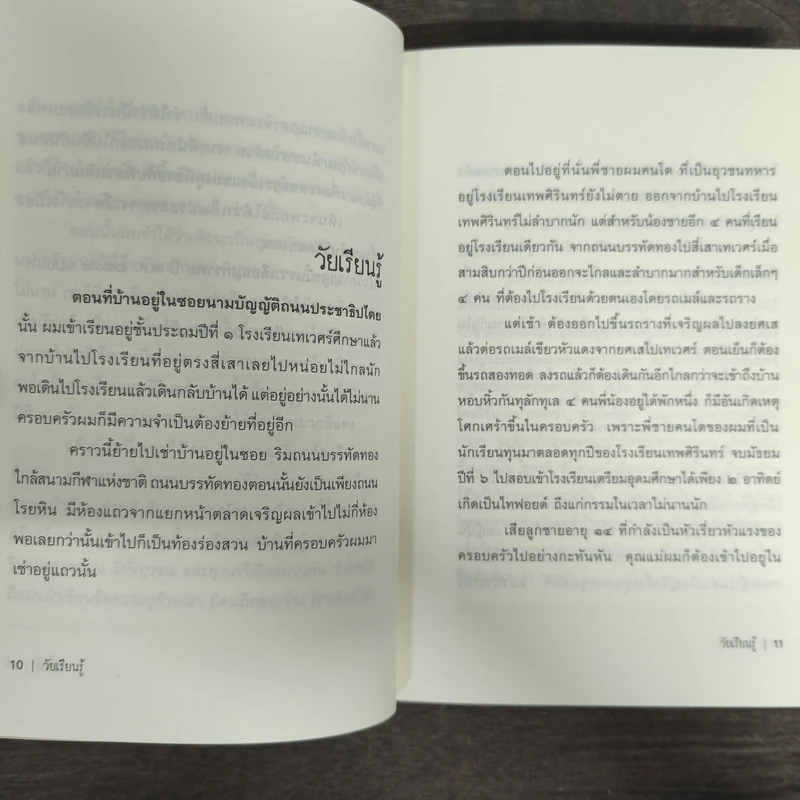 วัยเรียนรู้
ตอนที่บ้านอยู่ในซอยนามบัญญัติถนนประชาธิปไตย
นั้น ผมเข้าเรียนอยู่ชั้นประถมปีที่ ๑ โรงเรียนเทเวศร์ศึกษาแล้ว
จากบ้านไปโรงเรียนที่อยู่ตรงสี่เสาเลยไปหน่อยไม่ไกลนัก
พอเดินไปโรงเรียนแล้วเดินกลับบ้านได้ แต่อยู่อย่างนั้นได้ไม่นาน
ครอบครัวผมก็มีความจำเป็นต้องย้ายที่อยู่อีก
คราวนี้ย้ายไปเช่าบ้านอยู่ในซอย ริมถนนบรรทัดทอง
ใกล้สนามกีฬาแห่งชาติ ถนนบรรทัดทองตอนนั้นยังเป็นเพียงถนน
โรยหิน มีห้องแถวจากแยกหน้าตลาดเจริญผลเข้าไปไม่กี่ห้อง
พอเลยกว่านั้นเข้าไปก็เป็นท้องร่องสวน บ้านที่ครอบครัวผมมา
เช่าอยู่แถวนั้น
10 | วัยเรียนรู้
ตอนไปอยู่ที่นั่นพี่ชายผมคนโต ที่เป็นยุวชนทหาร
อยู่โรงเรียนเทพศิรินทร์ยังไม่ตาย ออกจากบ้านไปโรงเรียน
เทพศิรินทร์ไม่ลำบากนัก แต่สำหรับน้องชายอีก ๔ คนที่เรียน
อยู่โรงเรียนเดียวกัน จากถนนบรรทัดทองไปสี่เสาเทเวศร์เมื่อ
สามสิบกว่าปีก่อนออกจะไกลและลำบากมากสำหรับเด็กเล็กๆ
๔ คน ที่ต้องไปโรงเรียนด้วยตนเองโดยรถเมล์และรถราง
แต่เช้า ต้องออกไปขึ้นรถรางที่เจริญผลไปลงยศเส
แล้วต่อรถเมล์เขียวหัวแดงจากยศเสไปเทเวศร์ ตอนเย็นก็ต้อง
ขึ้นรถสองทอด ลงรถแล้วก็ต้องเดินกันอีกไกลกว่าจะเข้าถึงบ้าน
หอบหิ้วกันทุลักทุเล ๔ คนพี่น้องอยู่ได้พักหนึ่ง ก็มีอันเกิดเหตุ
โศกเศร้าขึ้นในครอบครัว เพราะพี่ชายคนโตของผมที่เป็น
นักเรียนทุนมาตลอดทุกปีของโรงเรียนเทพศิรินทร์ จบมัธยม
ปีที่ ๖ ไปสอบเข้าโรงเรียนเตรียมอุดมศึกษาได้เพียง ๒ อาทิตย์
เกิดเป็นไทฟอยด์ ถึงแก่กรรมในเวลาไม่นานนัก
เสียลูกชายอายุ ๑๔ ที่กำลังเป็นหัวเรี่ยวหัวแรงของ
ครอบครัวไปอย่างกะทันหัน คุณแม่ผมก็ต้องเข้าไปอยู่ใน
วัยเรียนรู้ | 11